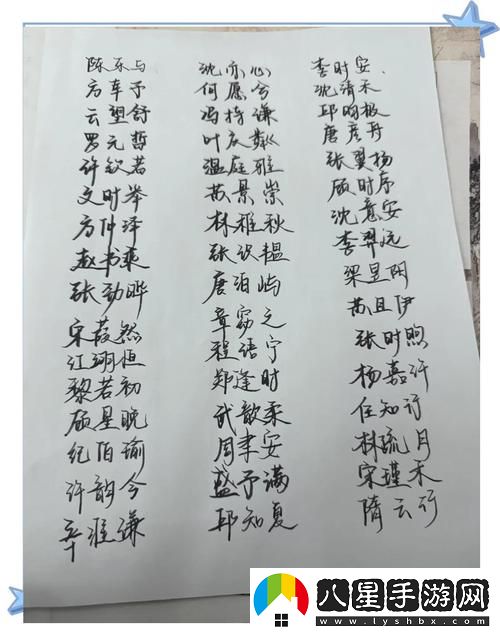 陈东与
方车予
云塑舒
罗元哲
许钦若
文时举
方仲泽
赵书乘
张劲晔
宋葭然
江翊恒
黎若初
顾星晚
纪伯瑜
许韵今
辛淮谦
沈亦心
何愿兮
冯持谦
叶庆粼
温庭雅
苏景崇
林稚秋
张识韫
唐泊屿
章窈之
程语宁
郑逢时
武歆柔
周聿安
盛予满
邱知夏
李时安
沈清禾
邱昀极
唐彦舟
张翼杨
顾时序
沈意安
李羿远
梁昱阳
苏且伊
张时煦
杨嘉许
任知行
林琉月
宋瑾禾
隋云行
八星手游网
www.lyshbx.com